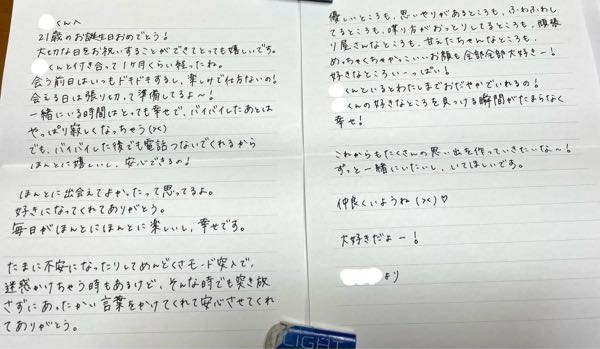 くんへ
21歳のお誕生日おめでとう！
大切な日をお祝いすることができてとっても嬉しいです。
くんと付き合って1ヶ月くらい経ったね。
会う前日はいつもドキドキするし、楽しみで仕方ないの！
会える日は張り切って準備してるよ〜！
一緒にいる時間はとっても幸せで、バイバイしたあとは
やっぱり寂しくなっちゃう(><)
でも、バイバイした後でも電話つないでくれるから
ほんとに嬉しいし、安心できるの！
ほんとに出会えてよかったって思ってるよ。
好きになってくれてありがとう。
毎日がほんとにほんとに楽しいし、幸せです。
たまに不安になったりしてめんどくさモード突入で、
迷惑かけちゃう時もあるけど、そんな時でも突き放
さずにあったかい言葉をかけてくれて安心させてくれ
てありがとう。
優しいところも、思いやりがあるところも、ふわふわし
てるところも、喋り方がおっとりしてるところも、頑張
り屋さんなところも、甘えたちゃんなところも、
めっちゃくちゃかっこいいお顔も全部全部大好きー！
好きなところいーっぱい！
くんといるとわたしまでおだやかでいれるの！
くんの好きなところを見つける瞬間がたまらなく
幸せ！
これからもたくさんの思い出を作っていきたいな〜！
ずっと一緒にいたいし、いてほしいです。
仲良くいようね(><)♡
大好きだよー！
より
LIGHT